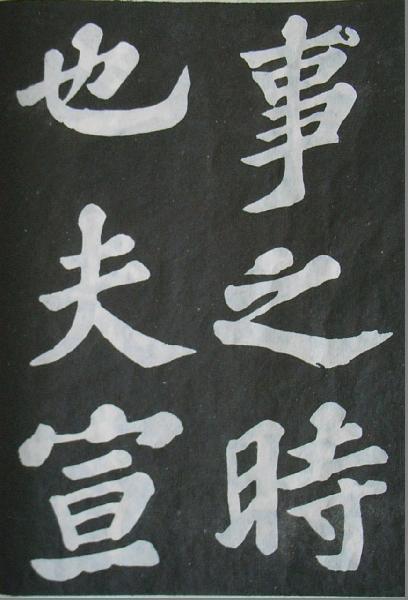 事之時
也夫宣